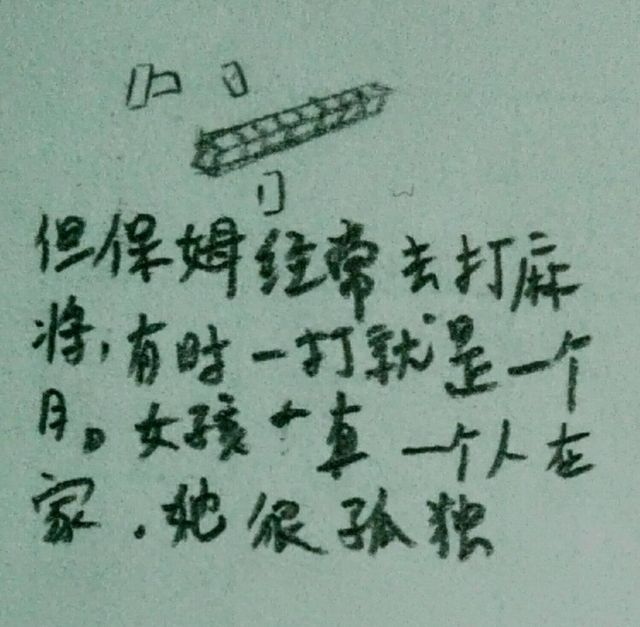 但保姆经常去打麻
将,有时一打就是一个
月。女孩一直一个人在
家.她很孤独